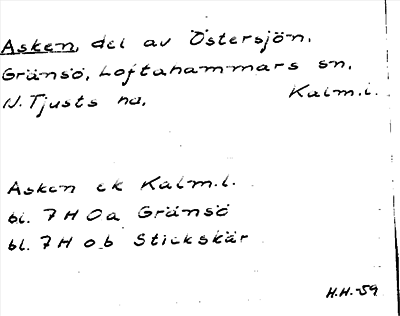 Asken, del av Östersjön.
Gränsö, Loftahammars sn.
N. Tjusts hd. Kalm.l.
Asken ek Kalm.l.
bl. 7 H 0a Gränsö
bl. 7 H 0b Stickskär
H.H.-59